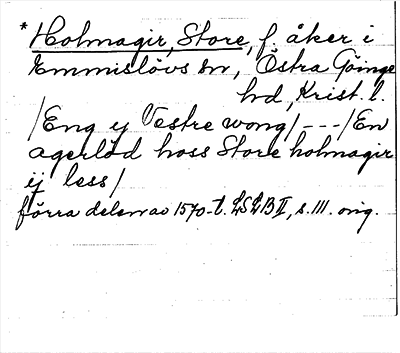 * Holmagir, Store, f. åker i
Emmislövs sn, Östra Göinge
hd, Krist. l.
/Eng y Vestre wong/---/En
agerlöd hoss Store holmagir
ij less/
förra delen av 1570-t. LSLB II, s. 111. orig.